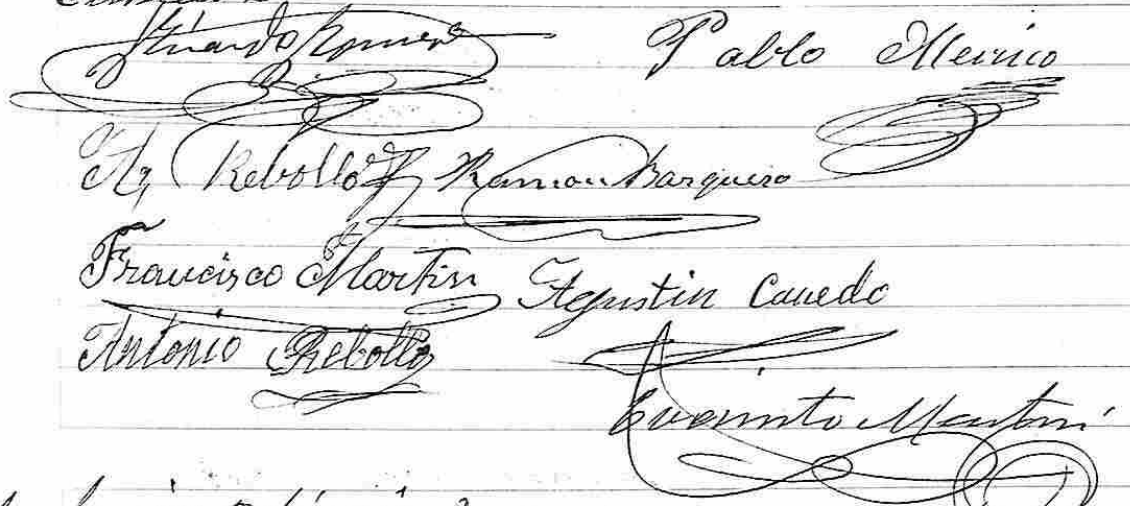 Eduardo Romero Pablo Merino
Ag Rebollo Ramon Barquero
Francisco Martin Agustin Canedo
Antonio Rebollo
Evaristo Martin